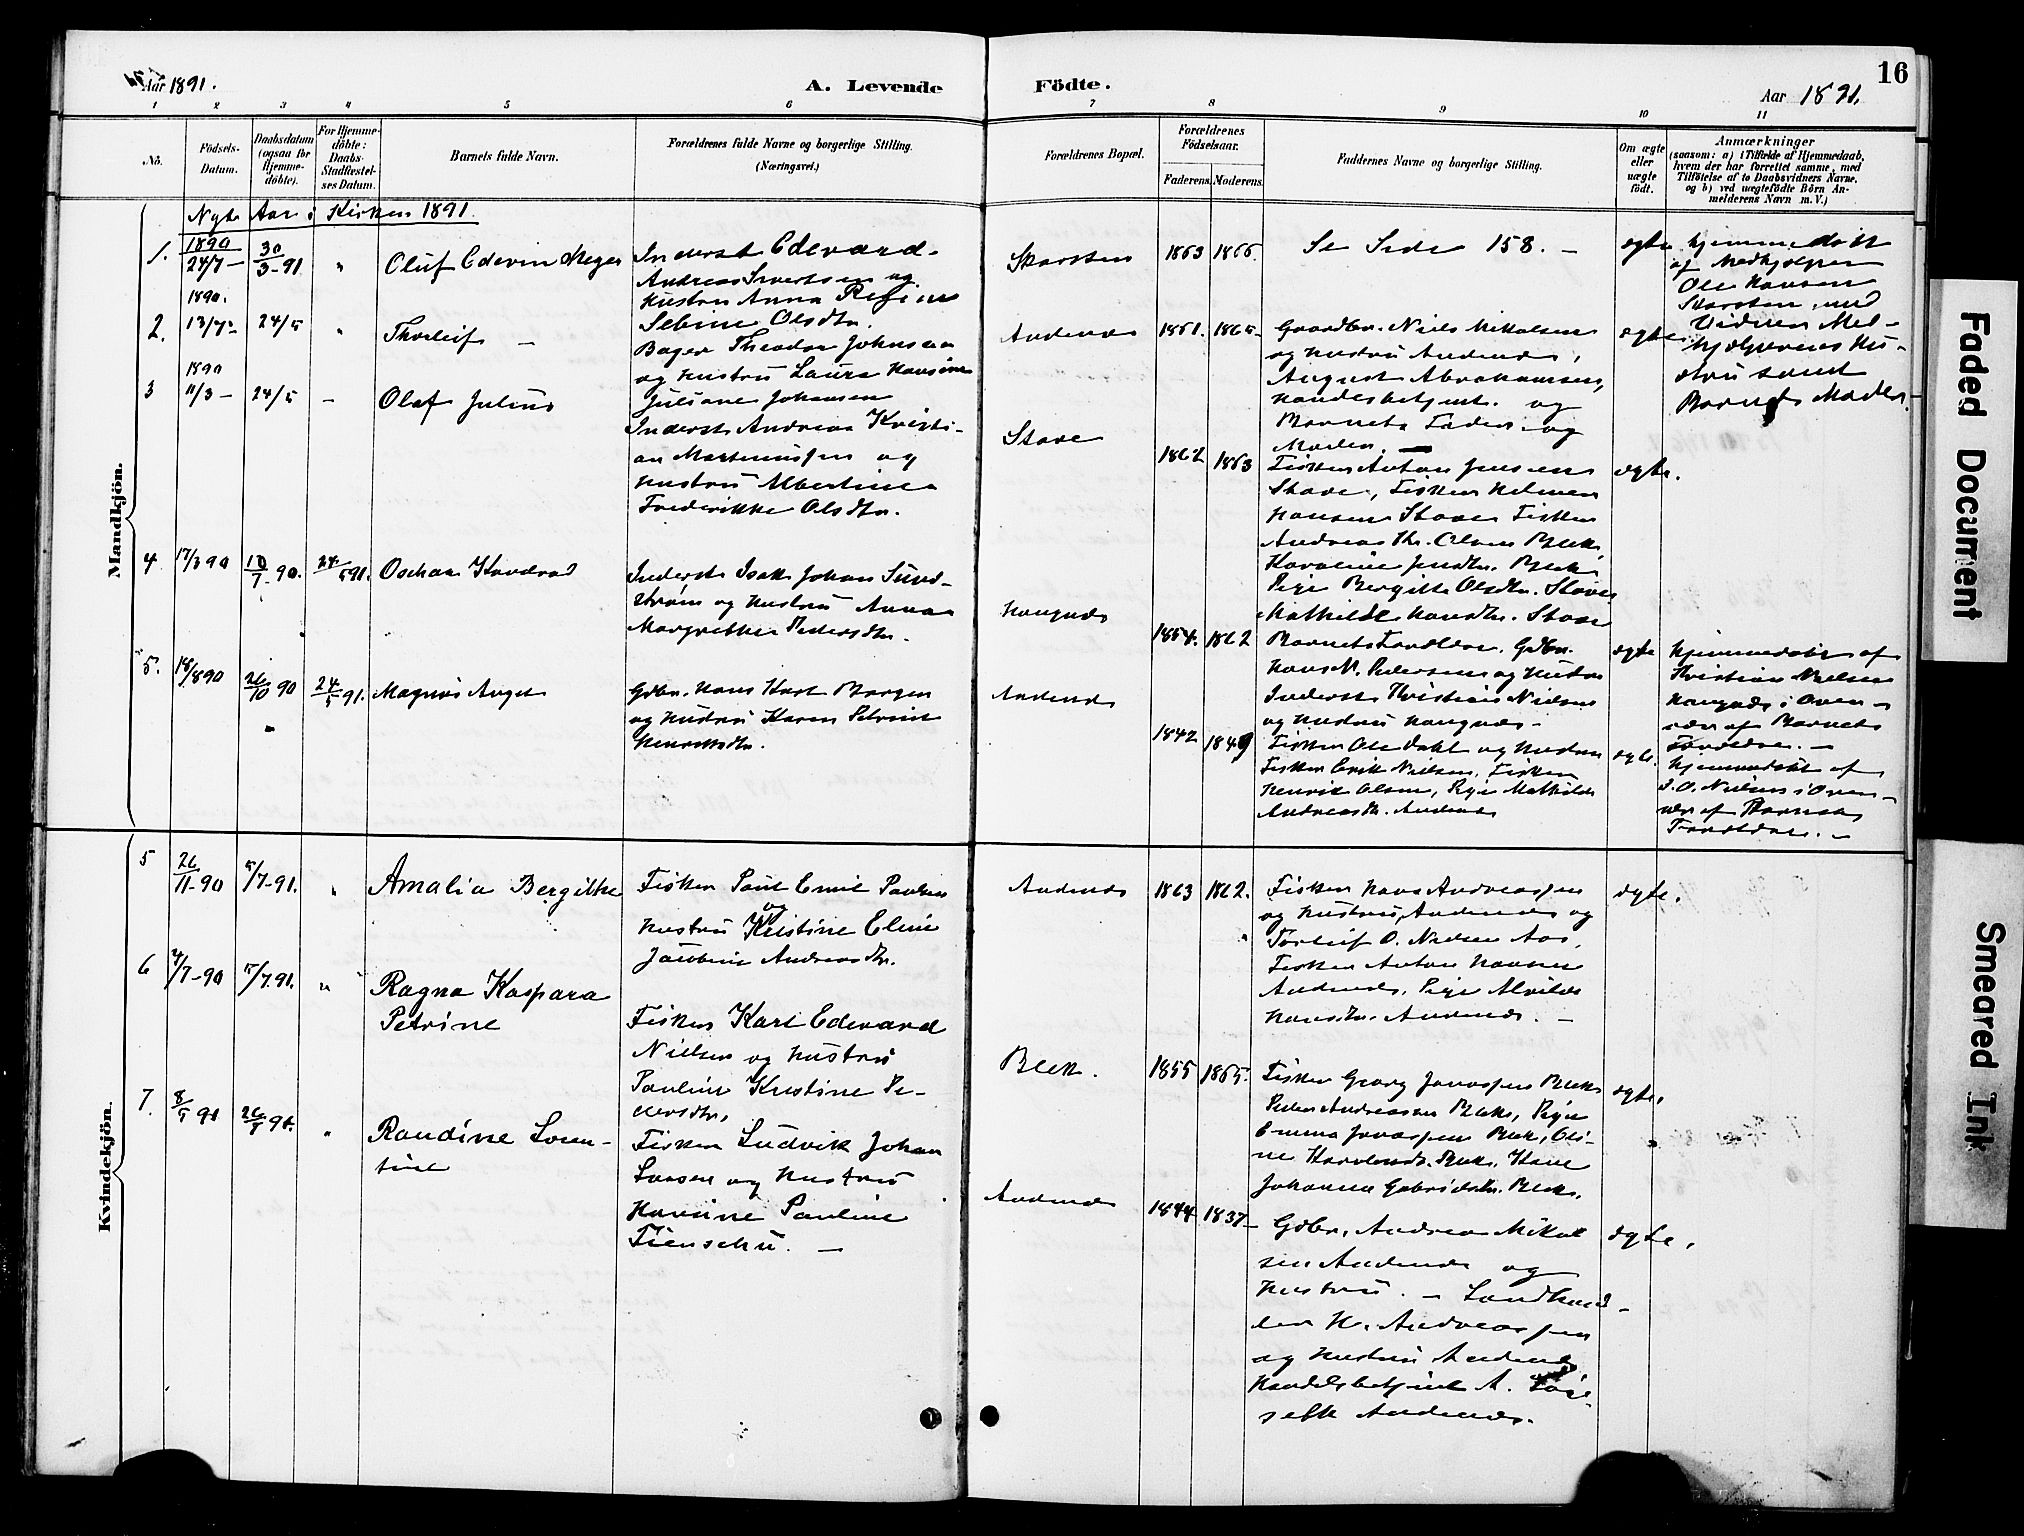 Aar 1891.
A. Levende
Födte.
16
Aar 1891.
1 2 3 4 5 6 7 8 9 10 11
No.
Födsels-
Datum.
Daabsdatum
(ogsaa for
Hjemme-
døbte).
For Hjemme-
döbte:
Daabs-
Stadfæstel-
ses Datum.
Barnets fulde Navn.
Forældrenes fulde Navne og borgerlige Stilling.
(Næringsvei.)
Forældrenes Bopæl.
Forældrenes
Födselsaar.
Faderens.
Moderens.
Faddernes Navne og borgerlige Stilling.
Om ægte
eller
uægte
födt.
Anmærkninger
(saasom: a) i Tilfælde af Hjemmedaab,
hvem der har forrettet samme, med
Tilföielse af to Daabsvidners Navne,
og b) ved uægtefödte Börn An-
melderens Navn m. V.)
Mandkjön.
Nyt Aar i Kirken 1891.
1.
1890
24/7 –
30/3-91
"
Oluf Edevin Meyer
Inderst Edevard
Andreas Sivertsen og
Hustru Anna
Sebine Olsdtr.
Skarsten
1863
1866.
Se Side 158. –
ægte
hjemmedøbt
af Medhjelper
Ole Hansen
Skarsten, med
Vidner Med-
hjelperens Hu-
stru samt
Barnets Moder.
2.
1890.
13/7
24/5
"
Thorleif –
Bager Theodor Johnsen
og Hustru Laura Hansine
Juliane Johansen
Andenæs
1861.
1865.
Gaardbr. Niels Mikalsen
og Hustru Andenæs,
August Abrahamsen,
Handelsbetjent. og
Barnets Fader og
Moder. –
ægte
3
1890
11/3 –
24/5
–
Olaf Julius
Inderst Andreas Kristi-
an Martinussen og
Hustru Albertine
Frederikke Olsdtr.
Stave
1862
1863
Fisker Anton Jensen
Stave, Fisker Helmer
Hansen Stave Fisker
Andreas Chr. Olsen Bleik,
Karoline Jensdtr. Bleik
Pige Bergitte Olsdtr. Stave
Mathilde Hansdtr. Stave
ægte.
4
17/3 90
10/7 90.
24/5 91.
Oschar Kondrad
Inderst Isak Johan Sund-
strøm og Hustru Anna
Margrethe Pedersdtr.
Haugnæs
1854.
1862
Barnets Forældre. Gdbr.
Hans N. Pedersen og Hustru
Inderst Kristian Nielsen
og Hustru Haugnæs –
ægte
hjemmedøbt af
Kristian Nielsen
Haugnæs i Over-
vær af Barnets
Forældre. –
5.
18/8 90
26/10 90
24/5 91.
Magnus Angel
Gdbr. Hans Kart Borgen
og Hustru Karen Petrine
Henriksdtr.
Andenæs
1842
1849
Fisker Ole Dahl og Hustru
Fisker Erik Nielsen, Fisker
Henrik Olsen, Pige Mathilde
Andreasdtr. Andenæs
ægte.
hjemmedøbt af
J. O. Nielsen i Over-
vær af Barnets
Forældre. –
Kvindekjön.
5
26/11-90
5/7-91.
"
Amalia Bergithe
Fisker Paul Emil Paulsen
og
Hustru Kristine Eline
Jacobine Andreasdtr.
Andenæs
1863
1862.
Fisker Hans Andreassen
og Hustru, Andenæs og
Torleif O. Nielsen Aas,
Fisker Anton Hansen
Andenæs, Pige Alvilde
Hansdtr. Andenæs. –
ægte.
6
4/7-90
5/7.91.
"
Ragna Kaspara
Petrine
Fisker Karl Edevard
Nielsen og Hustru
Pauline Kristine Pe-
dersdtr,
Bleik.
1855
1865.
Fisker Georg Jonassen Bleik
Peder Andreassen Bleik, Pige
Emma Jonassen Bleik, Oli-
ne Karolinedtr. Bleik. Kone
Johanna Gabrielsdtr. Bleik.
ægte.
7.
8/5 91
26/7 91.
"
Randine Loren-
tine
Fisker Ludvik Johan
Larsen og Hustru
Hansine Pauline
Fienschu. –
Andenæs
1844
1837 –
Gdbr. Andreas Mikal
sen Andenæs og
Hustru. – Landhand-
ler H. Andreassen
og Hustru Andenæs
Handelsbetjent A.
Andenæs.
ægte.
Faded Document
Smeared Ink